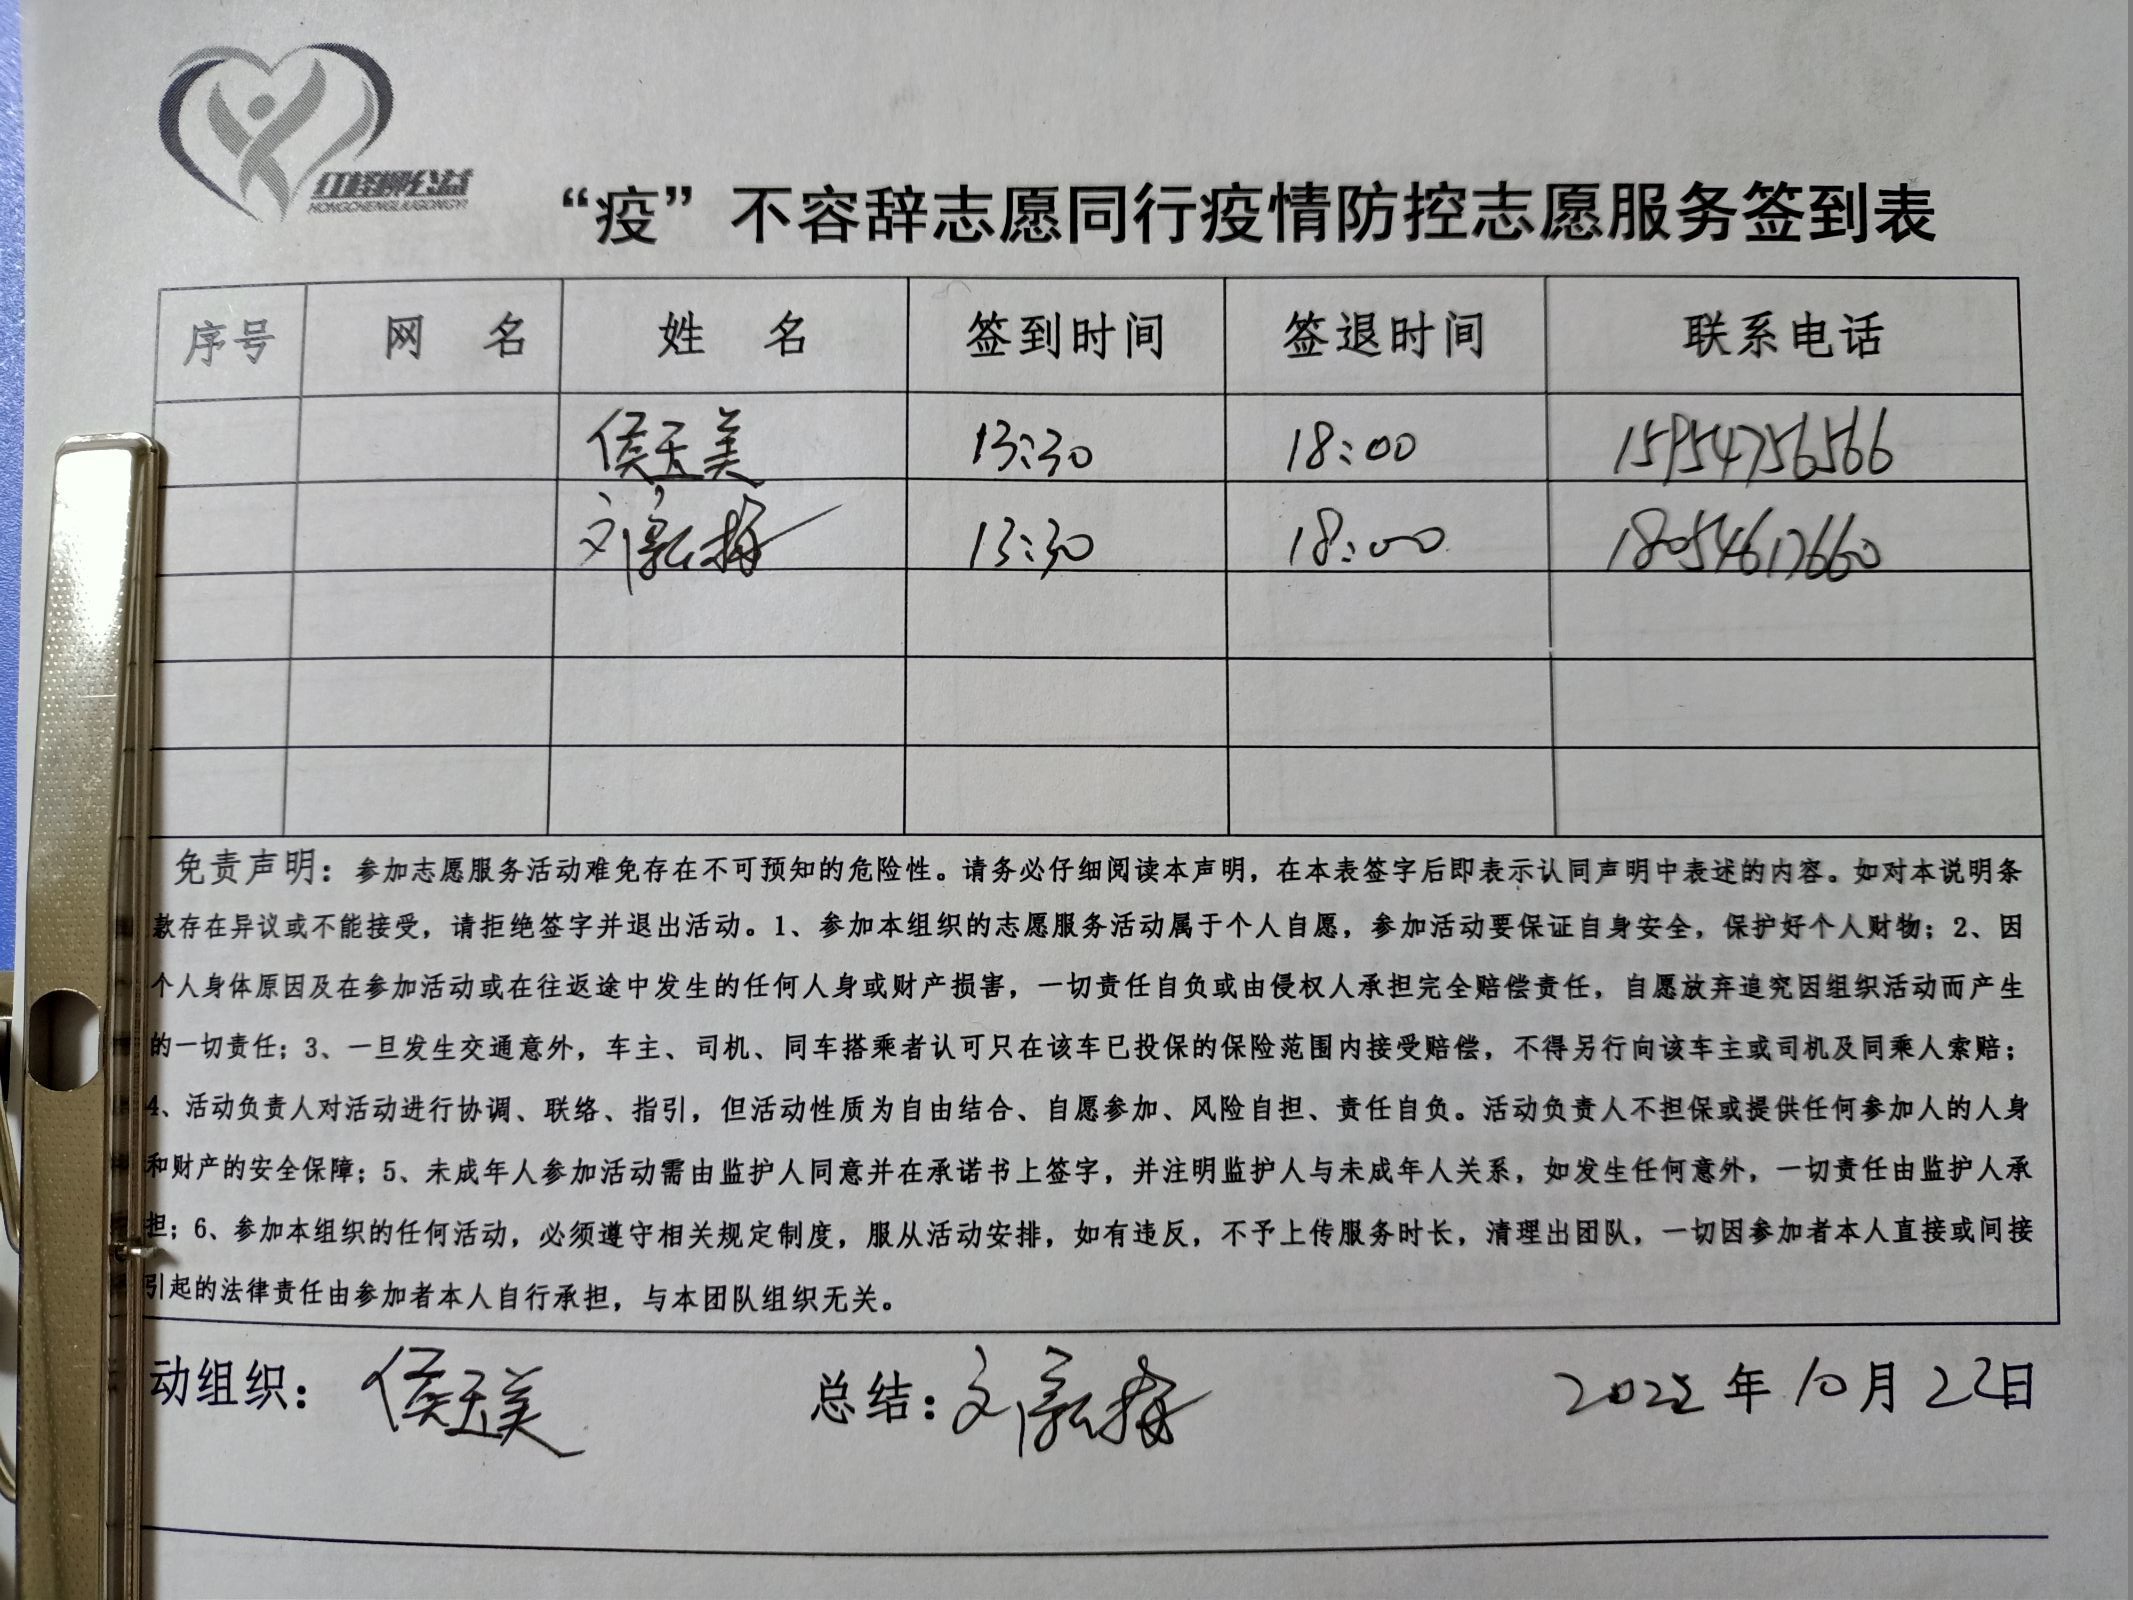 红柽柳公益
HONGCHENGLIUGONGYI
“疫”不容辞志愿同行疫情防控志愿服务签到表
序号 网 名 姓 名 签到时间 签退时间 联系电话
侯玉美 13:30 18:00 15954756566
刘 13:30 18:00 18054617660
免责声明：参加志愿服务活动难免存在不可预知的危险性。请务必仔细阅读本声明，在本表签字后即表示认同声明中表述的内容。如对本说明条
款存在异议或不能接受，请拒绝签字并退出活动。1、参加本组织的志愿服务活动属于个人自愿，参加活动要保证自身安全，保护好个人财物；2、因
个人身体原因及在参加活动或在往返途中发生的任何人身或财产损害，一切责任自负或由侵权人承担完全赔偿责任，自愿放弃追究因组织活动而产生
的一切责任；3、一旦发生交通意外，车主、司机、同车搭乘者认可只在该车已投保的保险范围内接受赔偿，不得另行向该车主或司机及同乘人索赔；
4、活动负责人对活动进行协调、联络、指引，但活动性质为自由结合、自愿参加、风险自担、责任自负。活动负责人不担保或提供任何参加人的人身
和财产的安全保障；5、未成年人参加活动需由监护人同意并在承诺书上签字，并注明监护人与未成年人关系，如发生任何意外，一切责任由监护人承
担；6、参加本组织的任何活动，必须遵守相关规定制度，服从活动安排，如有违反，不予上传服务时长，清理出团队，一切因参加者本人直接或间接
引起的法律责任由参加者本人自行承担，与本团队组织无关。
动组织：侯玉美 总结：刘 2022年10月22日